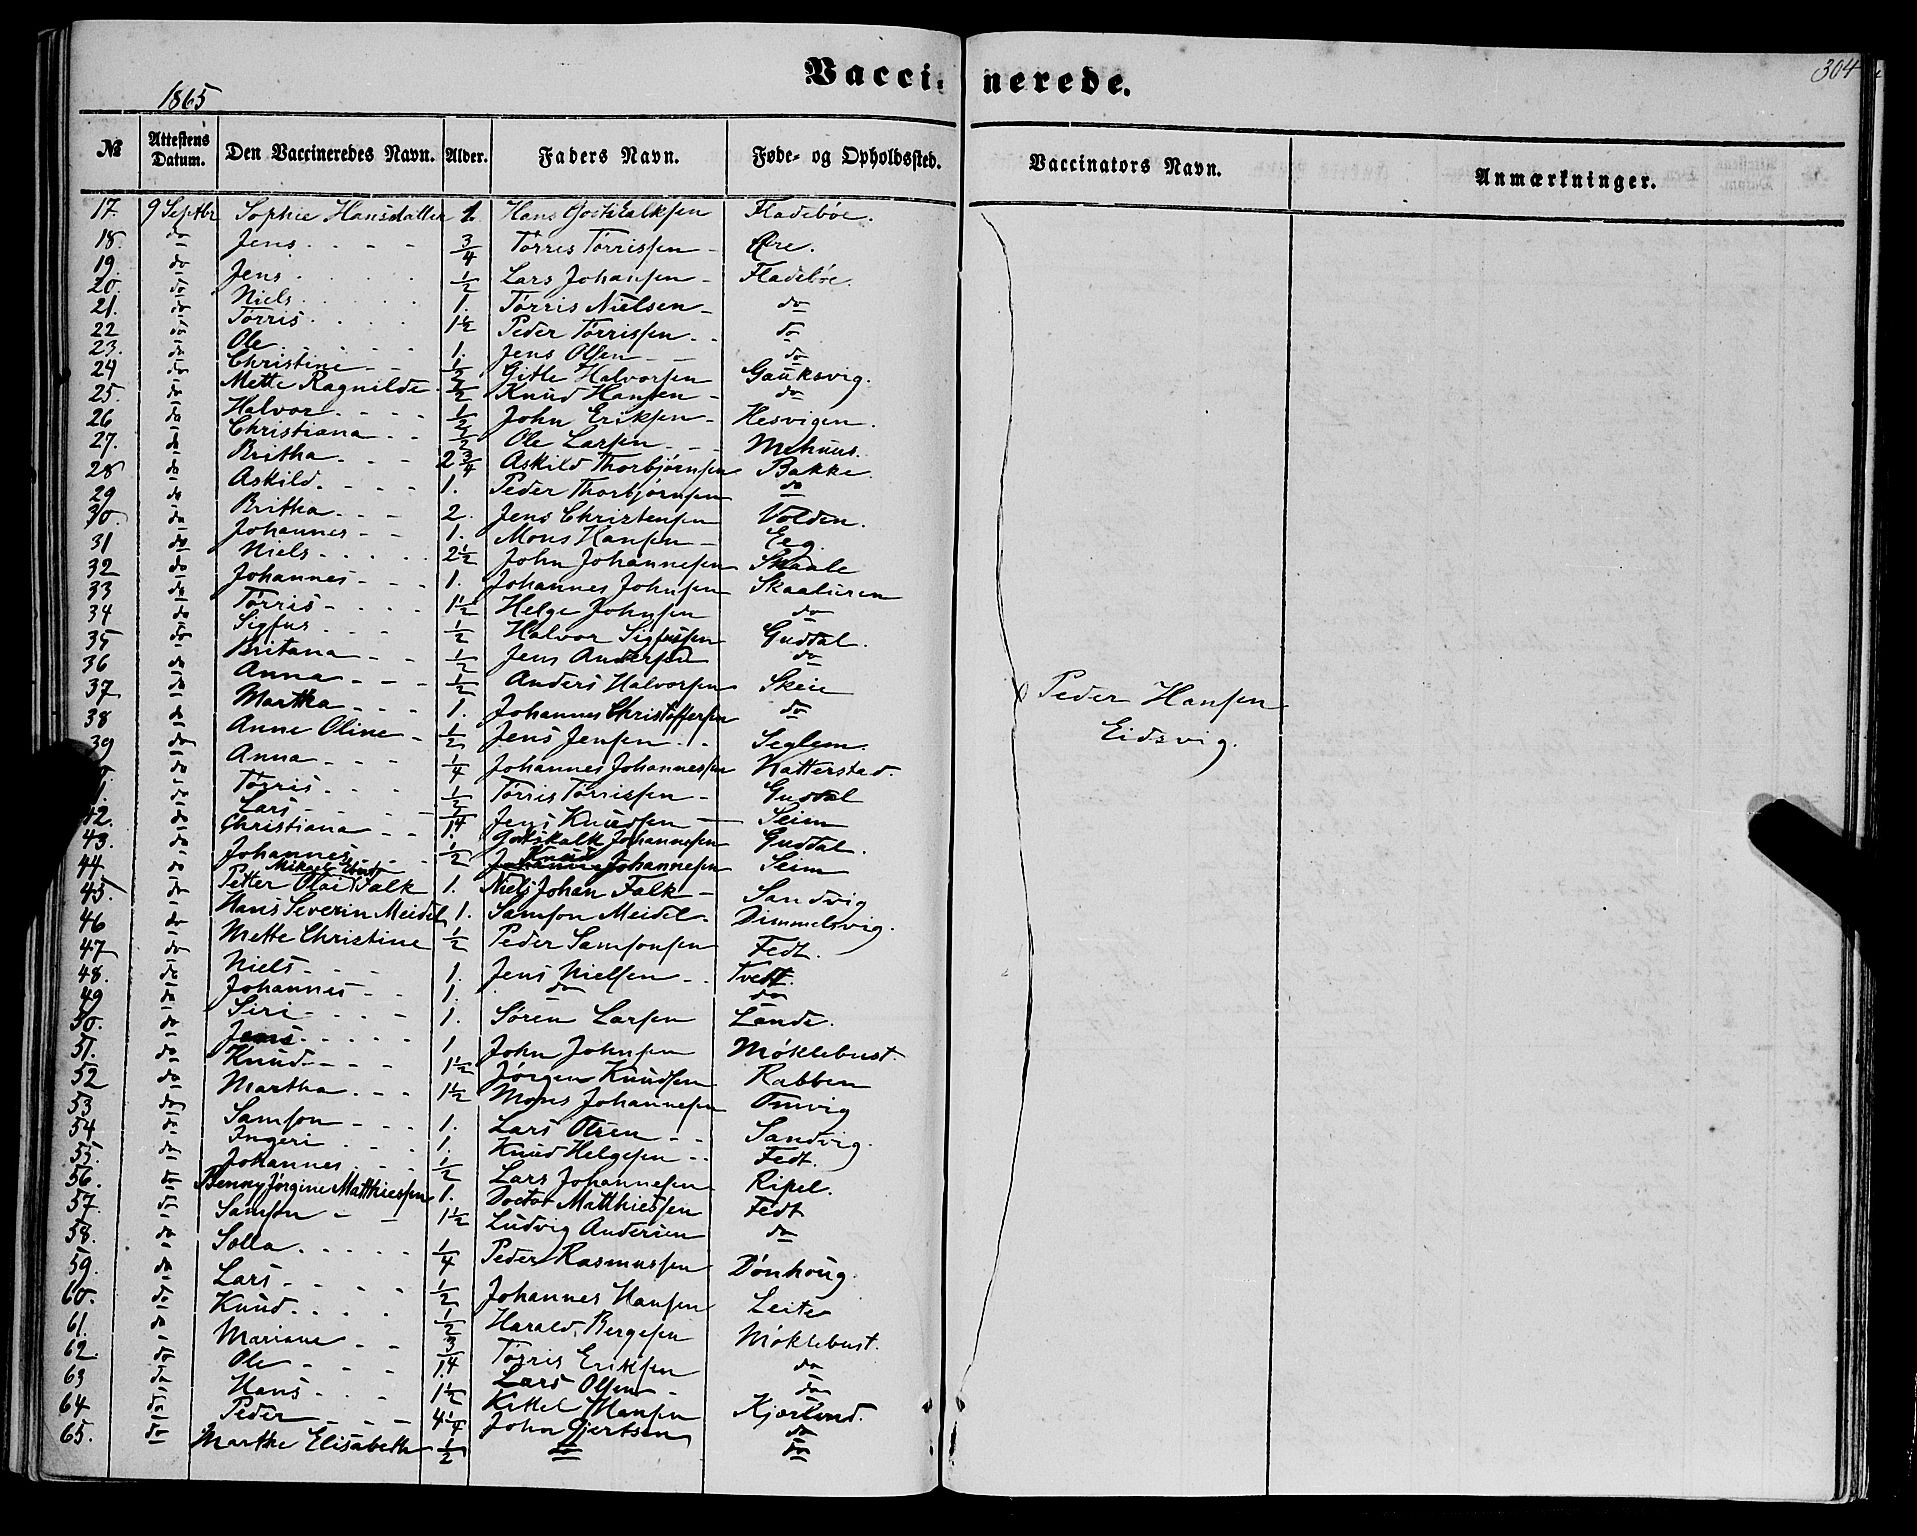 Vaccinerede.
304
1865
№ Attestens Datum. Den Vaccineredes Navn. Alder. Faders Navn. Føde- og Opholdssted. Vaccinators Navn. Anmærkninger.
17. 9 Septbr Sophie Hansdatter 1. Hans Gotskalksen Fladebøe.
18. do Jens 3/4 Tørres Tørrissen Øre.
19 do Jens 1/2 Lars Johansen Fladebøe.
20. do Niels 1. Tørris Nielsen do
21. do Tørris 1 1/2 Peder Tørrissen do
22 do Ole 1. Jens Olsen do
23. do Christine 1/2 Gitle Halvorsen Gauksvig.
24 do Mette Ragnilde 1/2 Knud Hansen do
25. do Halvor 1/2 John Eriksen Hesvigen.
26 do Christiana 1/2 Ole Larsen Mehuus.
27. do Britha 2 3/4 Askild Thorbjørnsen Bakke.
28 do Askild 1. Peder Thorbjørnsen do
29 do Britha 2. Jens Christensen Volden.
30. do Johannes 1. Mons Hansen Eeg.
31 do Niels 2 1/2 John Johannesen Skaale
32 do Johannes 1. Johannes Johnsen Skaaluren
33 do Tørris 1 1/2 Helge Johnsen do
34 do Sigfus 1/2 Halvor Sigfussen Guddal.
35 do Britana 1/2 Jens Andersen do
36 do Anna 1/2 Anders Halvorsen Skeie
37 do Martha 1. Johannes Christoffersen do
38 do Anne Oline 1/2 Jens Jensen Seglem.
39 do Anna 1/4 Johannes Johannessen Hatterstad.
do Tørris 1/2 Tørris Tørrissen Guddal
1. do Lars 1/4 Jens Knudsen Seim
42. do Christiana 1. Gotskalk Johannesen Guddal.
43. do Johannes 1/2 Knud Johannesen Seim
44. do Petter Olai Falk 1. Niels Johan Falk Sandvig
45. do Hans Severin Meidel 1. Samson Meidel Dimmelsvig.
46 do Mette Christine 1/2 Peder Samsonsen Fedt.
47 do Niels 1. Jens Nielsen Tvedt.
48. do Johannes 1. do do
49 do Siri 1. Søren Larsen Lande.
50. do Jens 1 John Johnsen Møklebust
51. do Knud 1 1/2 Jørgen Knudsen Rabben
52 do Martha 1 1/2 Mons Johannesen Omvig
53 do Samson 1. Lars Olsen Sandvig.
54 do Ingeri 1. Knud Helgesen Fedt.
55. do Johannes 1/2 Lars Johannesen Ripel.
56. do Benny Jørgine Matthiessen 1. Doctor Matthiessen Fedt
57. do Samson 1 1/2 Ludvig Andersen do
58. do Solla 1/4 Peder Rasmussen Dønhoug.
59. do Lars 1/2 Johannes Hansen Leite
60. do Knud 1/2 Harald Bergesen Møklebust.
61. do Mariane 3/4 Tørris Eriksen do
62. do Ole 1. Lars Olsen do
63 do Hans 1 1/2 Kittel Hansen Kjærland.
64 do Peder 4 1/4 John Gjertsen do
65. do Marthe Elisabeth 1/2 do do
Peder Hansen
Eidsvig.